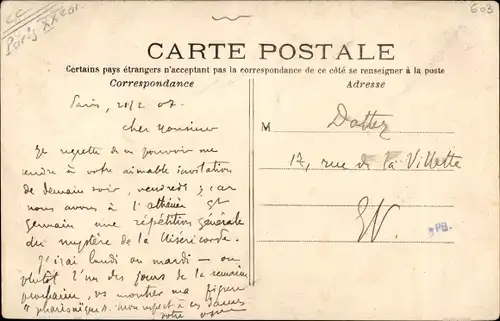 cc
Paris XXe ar.
603
CARTE POSTALE
Certains pays étrangers n'acceptant pas la correspondance de ce côté se renseigner à la poste
Correspondance
Adresse
Paris, 21/2 07.
Cher Monsieur
Je regrette de ne pouvoir me
rendre à votre aimable invitation
de demain soir, vendredi, car
nous avons à l'athénée St
Germain une répétition générale
du mystère de la Miséricorde.
J'irai lundi ou mardi — ou
plutôt l'un des jours de la semaine
prochaine, vs montrer ma figure
"pharisaïque". Mon respect à ces dames
votre
M Dottez
17, rue de la Villette
EV.
PB.